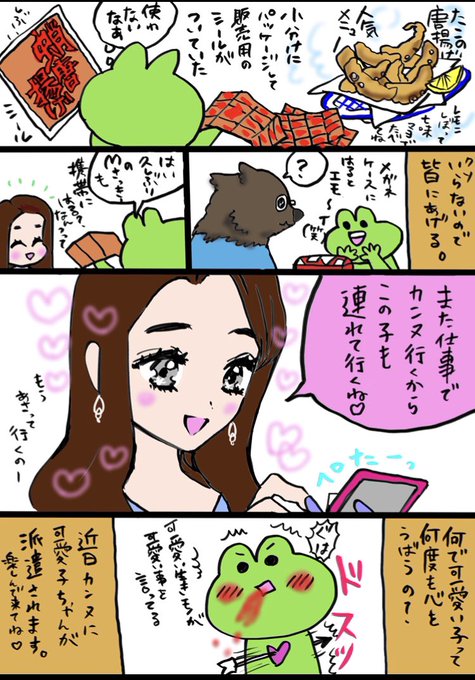 たこの
唐揚げ
人気
メニュー
レモン
しぼって
七味
小分けに
パッケージして
販売用の
シールが
ついていた
使わ
ない
なぁ…。
しぶ
シール
いらないので
皆にあげる。
メガネ
ケースに
はると
エモ〜イ
(笑)
?
はい
久しぶり
の
Mさんも
携帯に
また仕事で
カンヌ行くから
この子も
連れて行くね♡
ペターっ
もう
あさって
行くのー
何で可愛い子って
何度も心を
うばうの?
ドスッ
ぐは
可愛い生きものが
可愛い事を
言ってる
近日カンヌに
可愛子ちゃんが
派遣されます。
楽しんで来てね♡